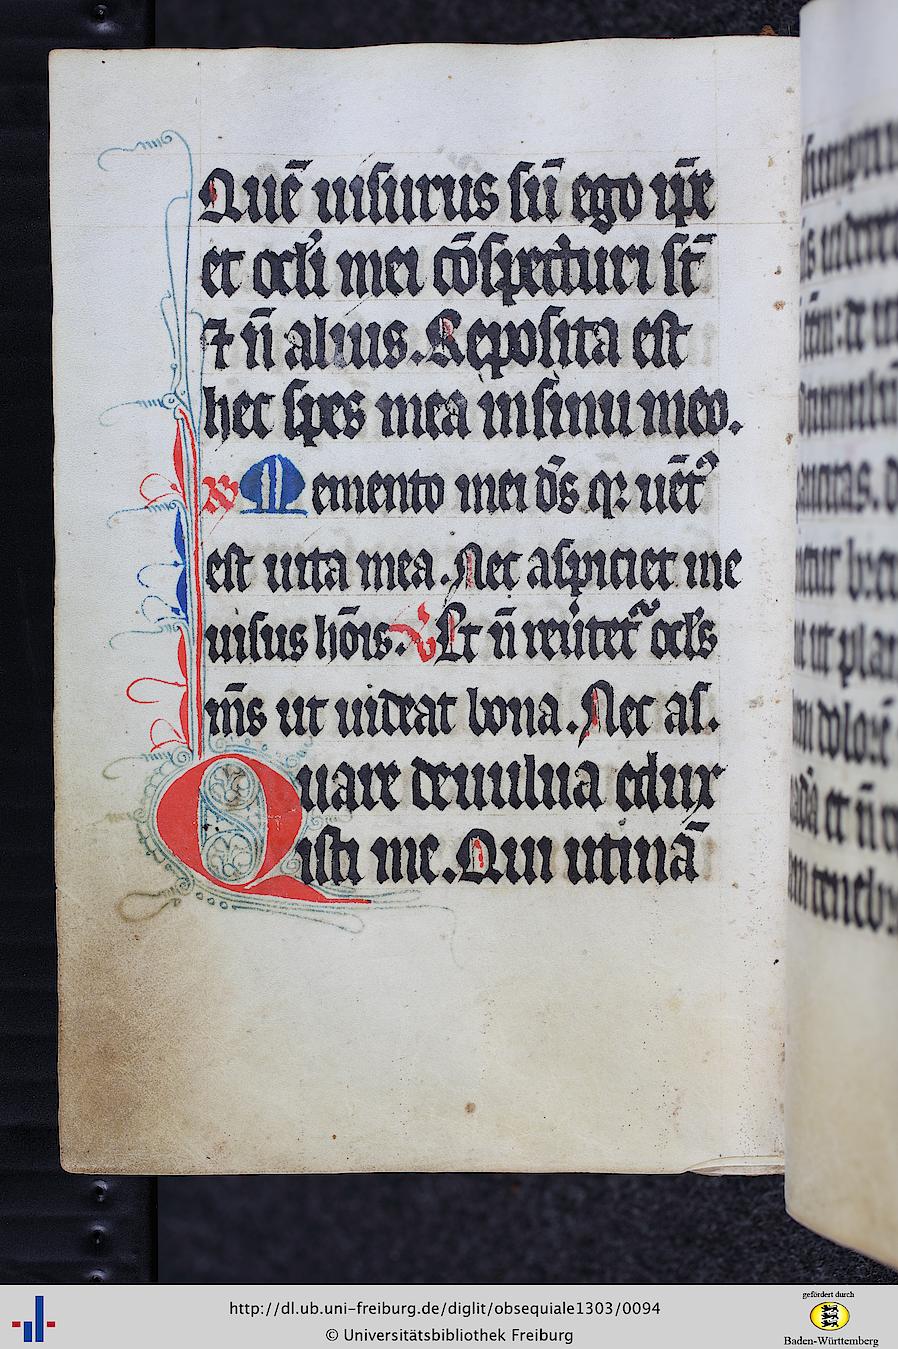 Quē uisurus sū ego ip̄e
et ocl'i mei cōspecturi st̄
⁊ n̄ alius. Reposita est
hec spes mea in sinu meo.
Memento mei d̄s qꝛ uēt᷒
est uita mea. Nec aspiciet me
uisus hōis. V Et n̄ reūtet᷒ ocl's
m̄s ut uideat bona. Nec as.
Quare de uulua edux
isti me. Qui utinā
http://dl.ub.uni-freiburg.de/diglit/obsequiale1303/0094
© Universitätsbibliothek Freiburg
gefördert durch
Baden-Württemberg